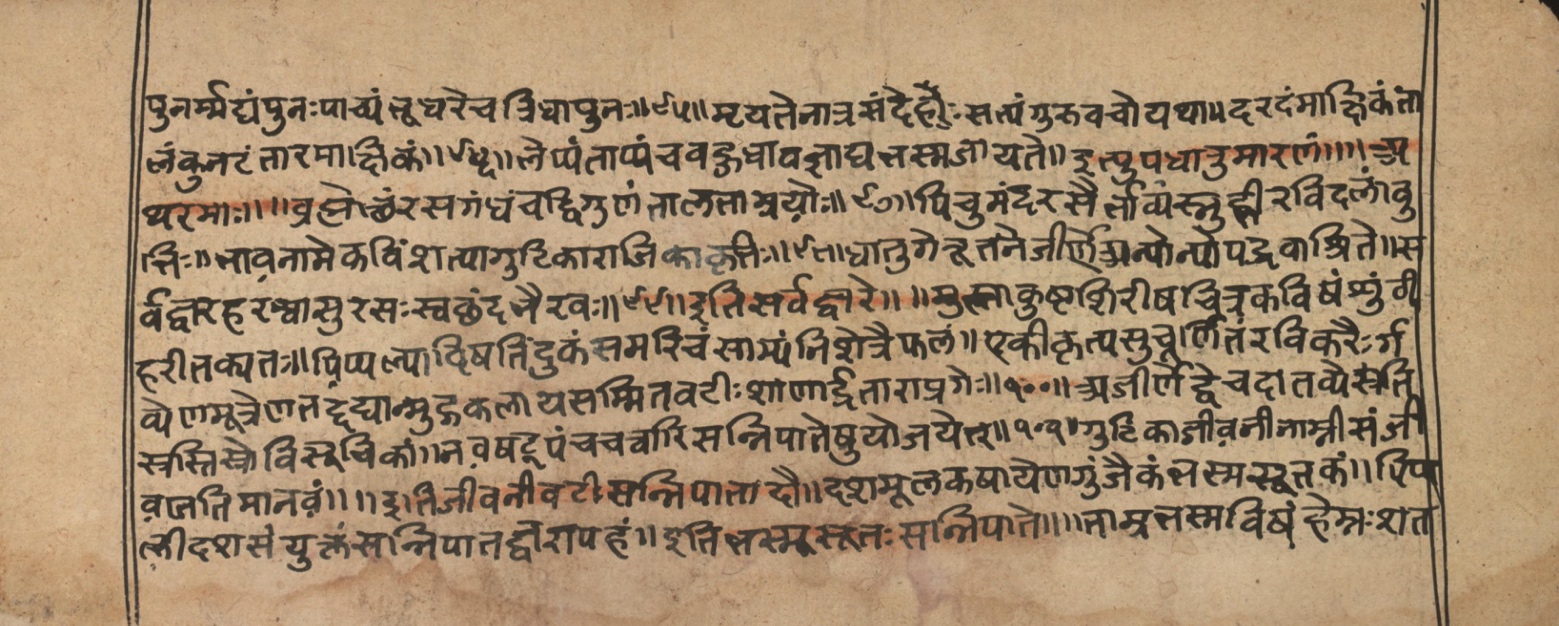 पुनर्म्मद्यंपुनःपाच्यंभूधरेचत्रिधापुनः॥९५॥मृयतेनात्रसंदेहोः सत्यंगुरुवचोयथा॥दरदंमाक्षिकंता
लंकुनटंतारमाक्षिकं॥९६॥लेप्यंताप्यंचवह्रुधावज्राद्यभस्मजायते॥इत्युपधातुमारणं॥॥अ
थरमाः॥॥ रसगंधंचद्विगुणंतालताम्रयोः॥९७॥पिचुमंदरसैर्भाव्यंस्नुहीरविदलांबु
भिः॥भावनामेकविंशत्यागुटिकाराजिकाकृतिः॥९८॥धातुगेनूतनेजीर्णेअन्योन्योपद्रवाश्रिते॥स
र्वद्वारहरश्वासुरसःस्वछंदभैरवः॥९९॥इतिसर्वद्वारे॥॥मुस्ताकुष्टशिरीषचित्रकविषंशुंठी
हरीतक्यतः॥पिप्पल्योदिषतिंदुकंसमरिचं साम्यंनिशेत्रैफलं॥एकीकृत्यसुचूर्णितंरविकरैःर्ग
व्येणमूत्रेणतद्दद्यान्मुद्गकलायसम्मितवटीःशाणार्द्रताराप्रगेः॥१००॥अजीर्णेद्वेचदातव्ये
स्त्रस्तिस्रोविसूचिकां॥नवषट्पंचचवारिसन्निपातेषुयोजयेत्॥१०१॥गुटिकाजीवनीनाम्नीसंजी
वजतिमानवं॥॥इतिजीवनीवटीसन्निपातादौ॥दशमूलकषायेणगुंजैकंभस्मसूतकं॥पिप
लीदशसंयुक्तंसन्निपातद्वारापहं॥इतिभस्मसूतःसन्निपाते॥॥ताम्रभस्मविषंहेम्नःशता